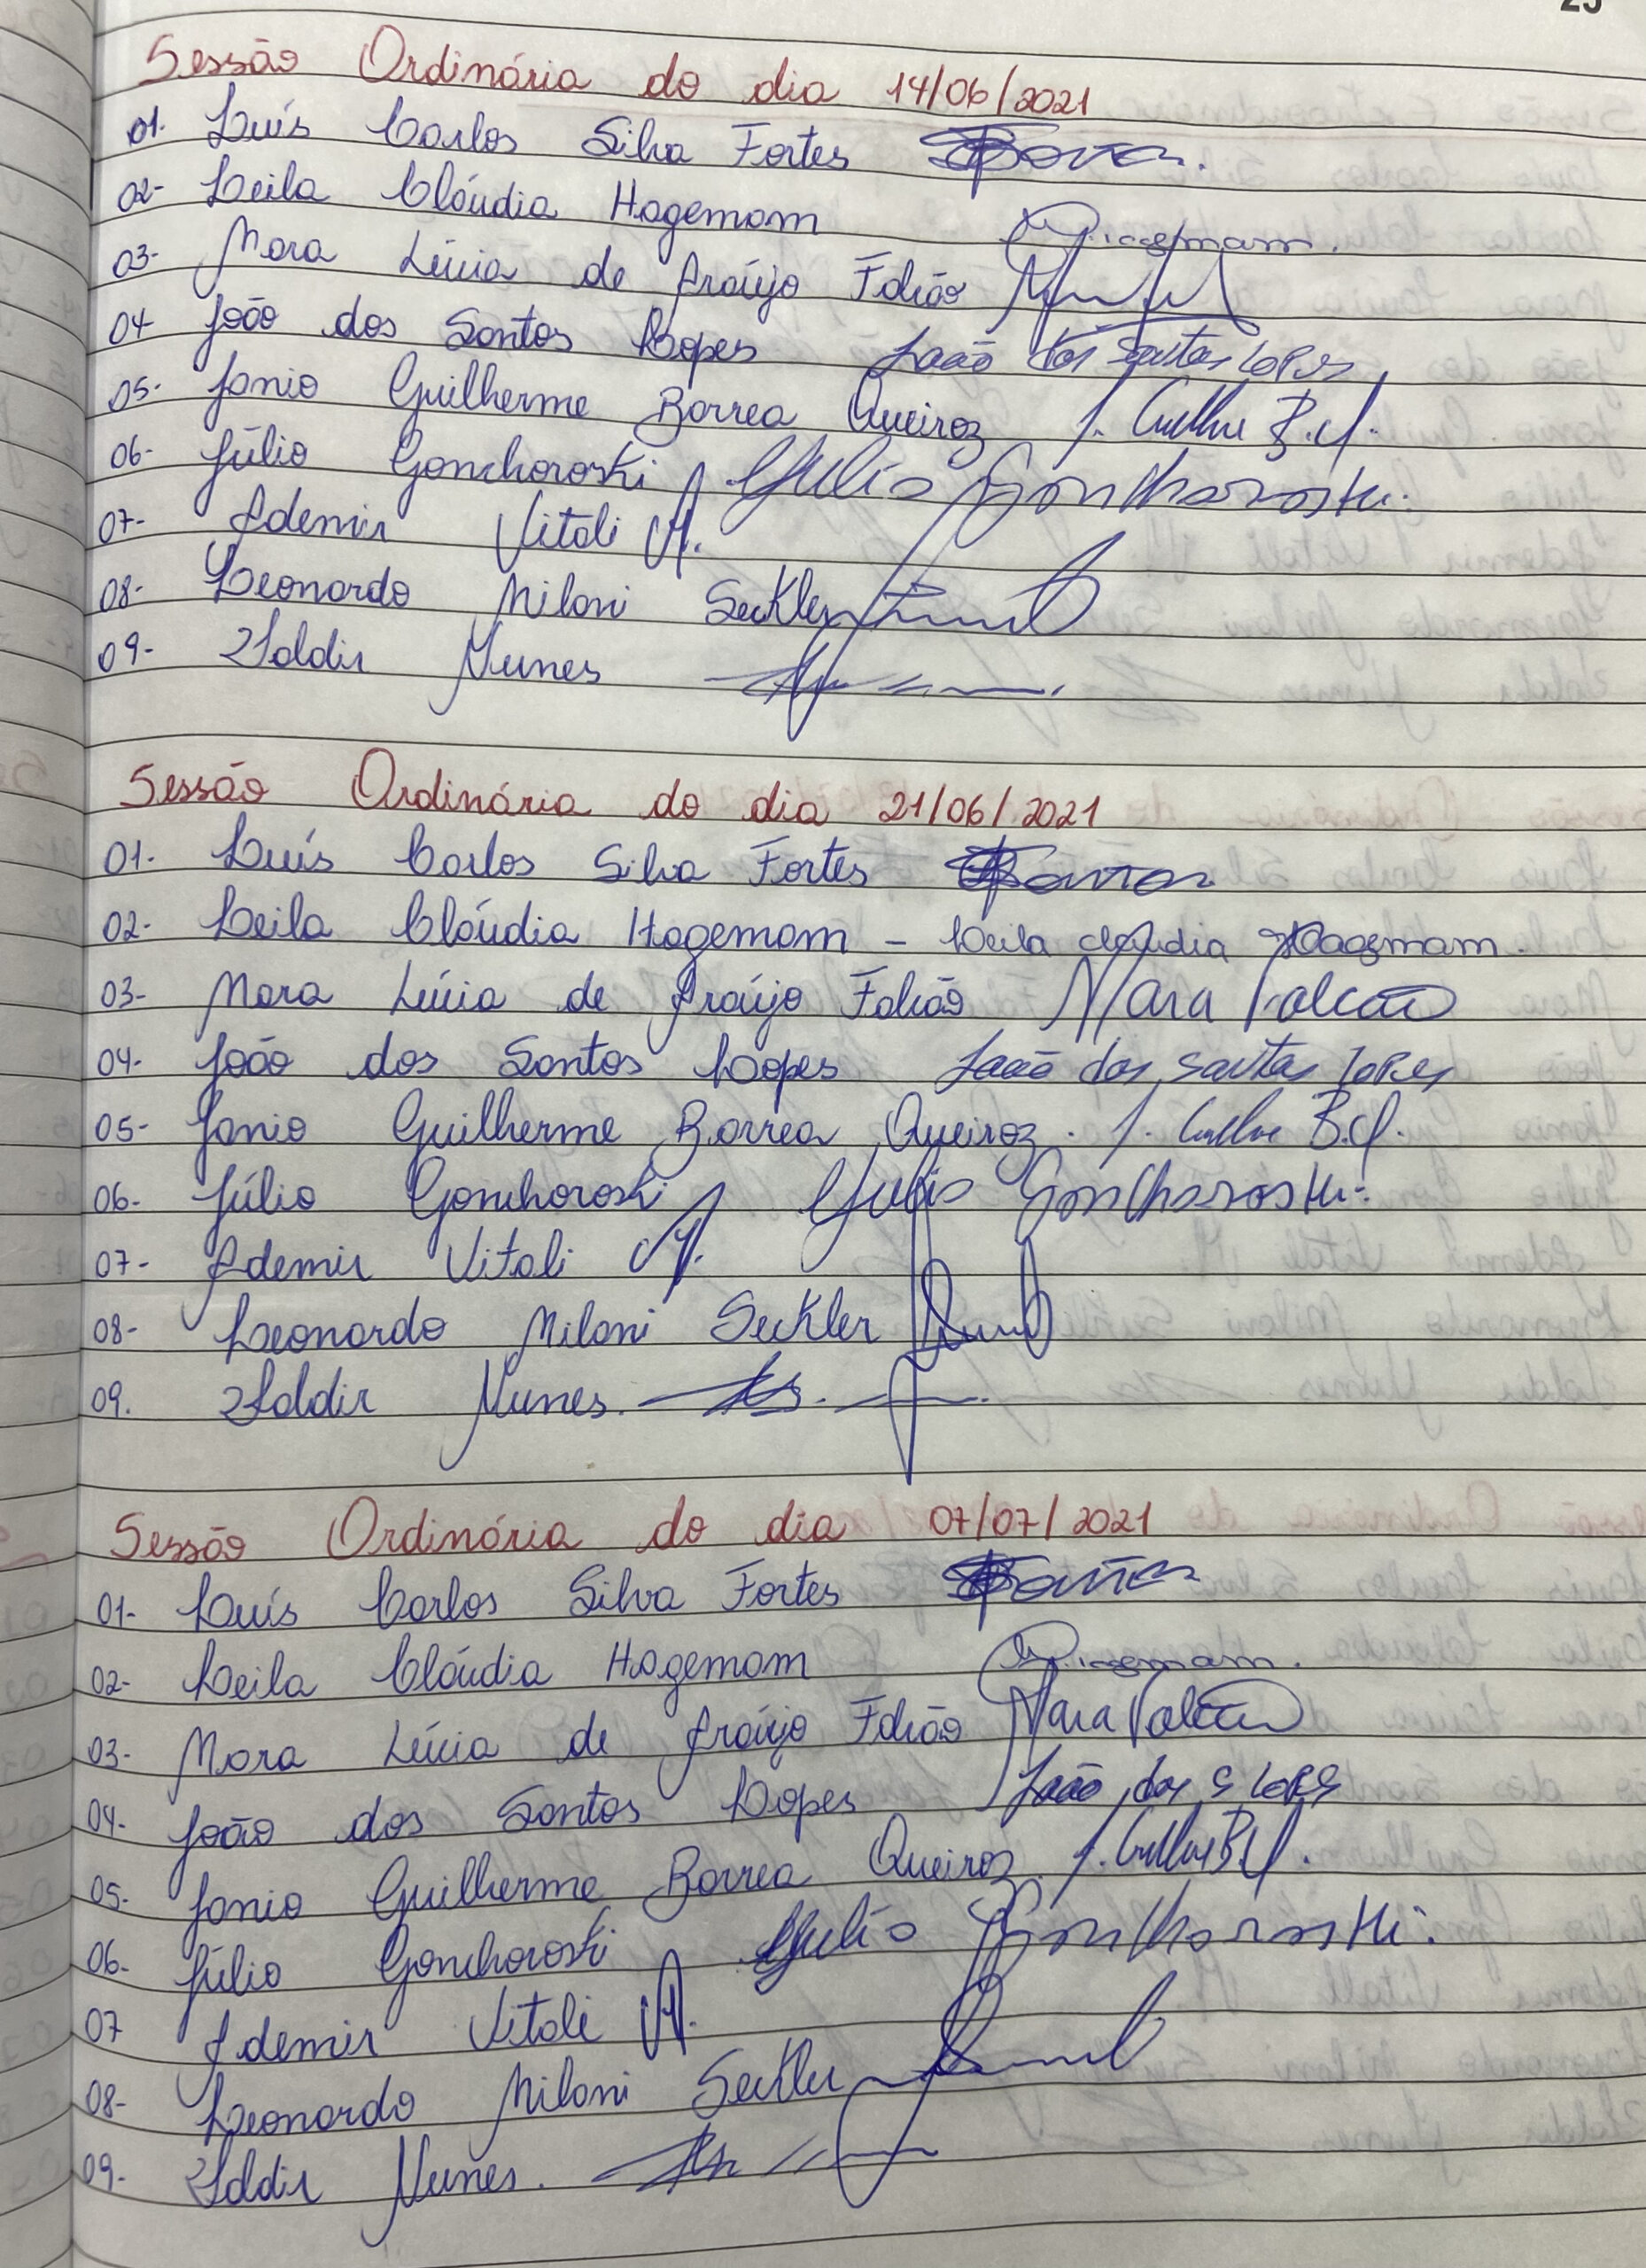 Sessão Ordinária do dia 14/06/2021
01. Luís Carlos Silva Fortes
02- Leila Cláudia Hagemam
03- Mara Lúcia de Araújo Falcão
04 João dos Santos Lopes João dos Santos Lopes
05- Janio Guilherme Borrea Queiroz J. Guilhe B.Q.
06- Júlio Gonchoroski Julio Gonchoroski.
07- Ademir Vitali
08- Leonardo Miloni Seckler
09- Valdir Nunes
Sessão Ordinária do dia 21/06/2021
01- Luís Carlos Silva Fortes
02- Leila Cláudia Hagemam - Leila Claudia Hagemam.
03- Mara Lúcia de Araújo Falcão Mara Falcão
04- João dos Santos Lopes João dos Santos Lopes
05- Janio Guilherme Borrea Queiroz. J. Guilhe B.Q.
06- Júlio Gonchoroski Julio Gonchoroski.
07- Ademir Vitali
08- Leonardo Miloni Seckler
09. Valdir Nunes.
Sessão Ordinária do dia 07/07/2021
01- Luís Carlos Silva Fortes
02- Leila Cláudia Hagemam
03- Mara Lúcia de Araújo Falcão Mara Falcão
04- João dos Santos Lopes João dos S Lopes
05- Janio Guilherme Borrea Queiroz. J. Guilhe B.Q.
06- Júlio Gonchoroski Julio Gonchoroski.
07 Ademir Vitali
08- Leonardo Miloni Seckler
09- Valdir Nunes.